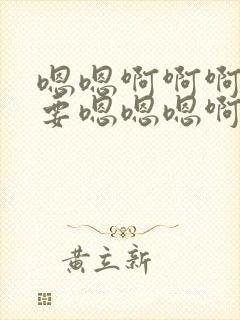 嗯嗯啊啊啊
要嗯嗯嗯啊
黄立新